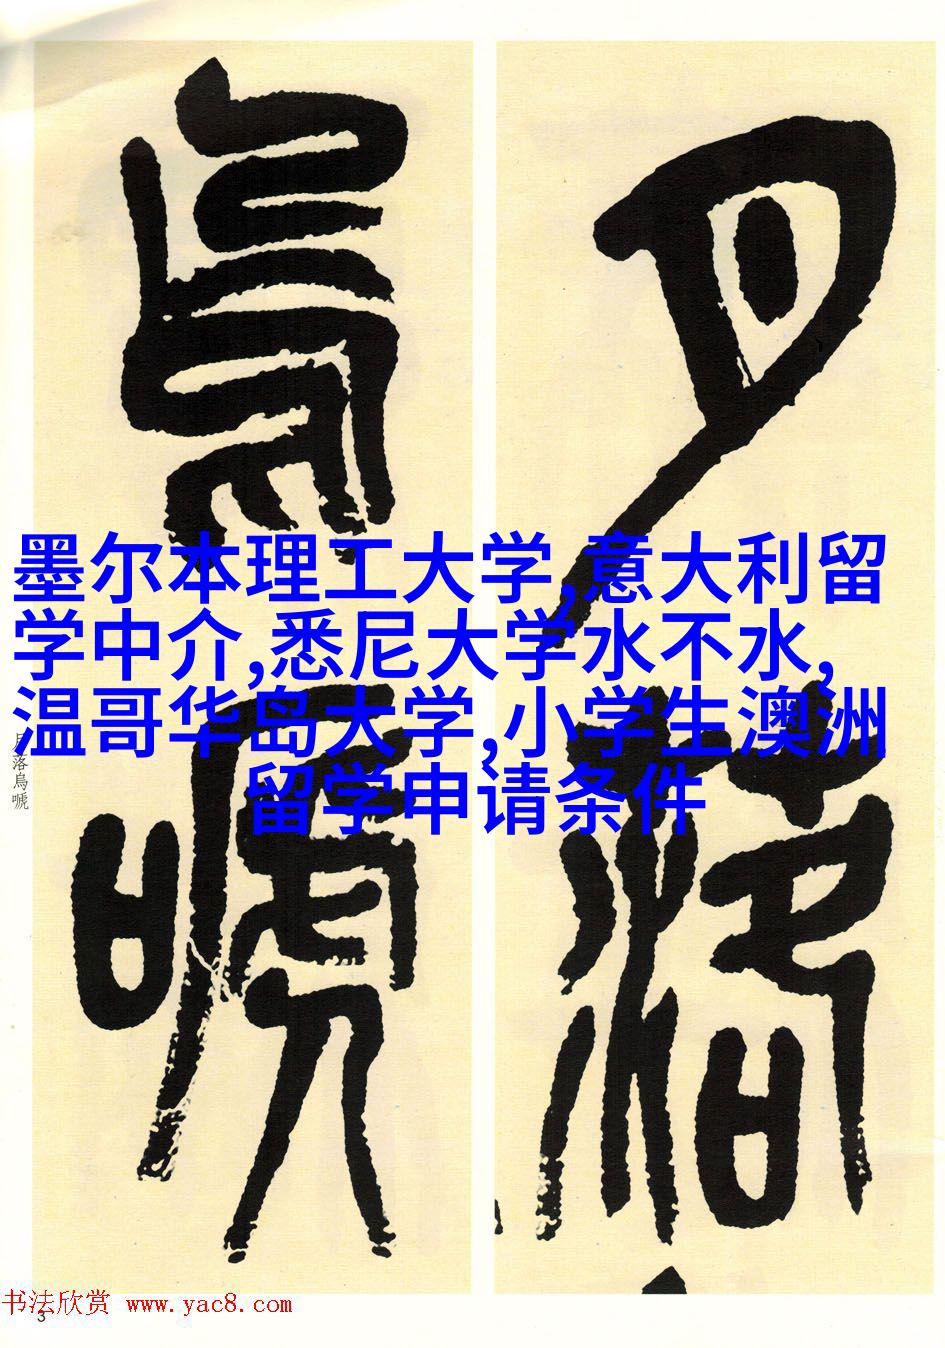 月落
烏嗁
墨尔本理工大学,意大利留
学中介,悉尼大学水不水,
温哥华岛大学,小学生澳洲
留学申请条件
月落烏嗁
书法欣赏 www.yac8.com
3